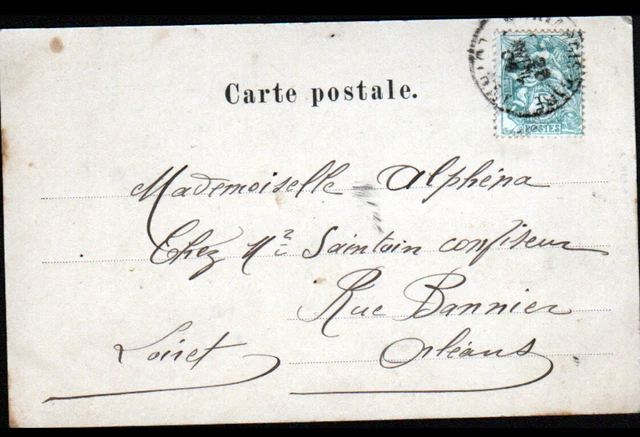 Carte postale.
POSTES
Mademoiselle Alphéna
Chez Mr Saintoin confiseur
Rue Bannier
Loiret Orléans